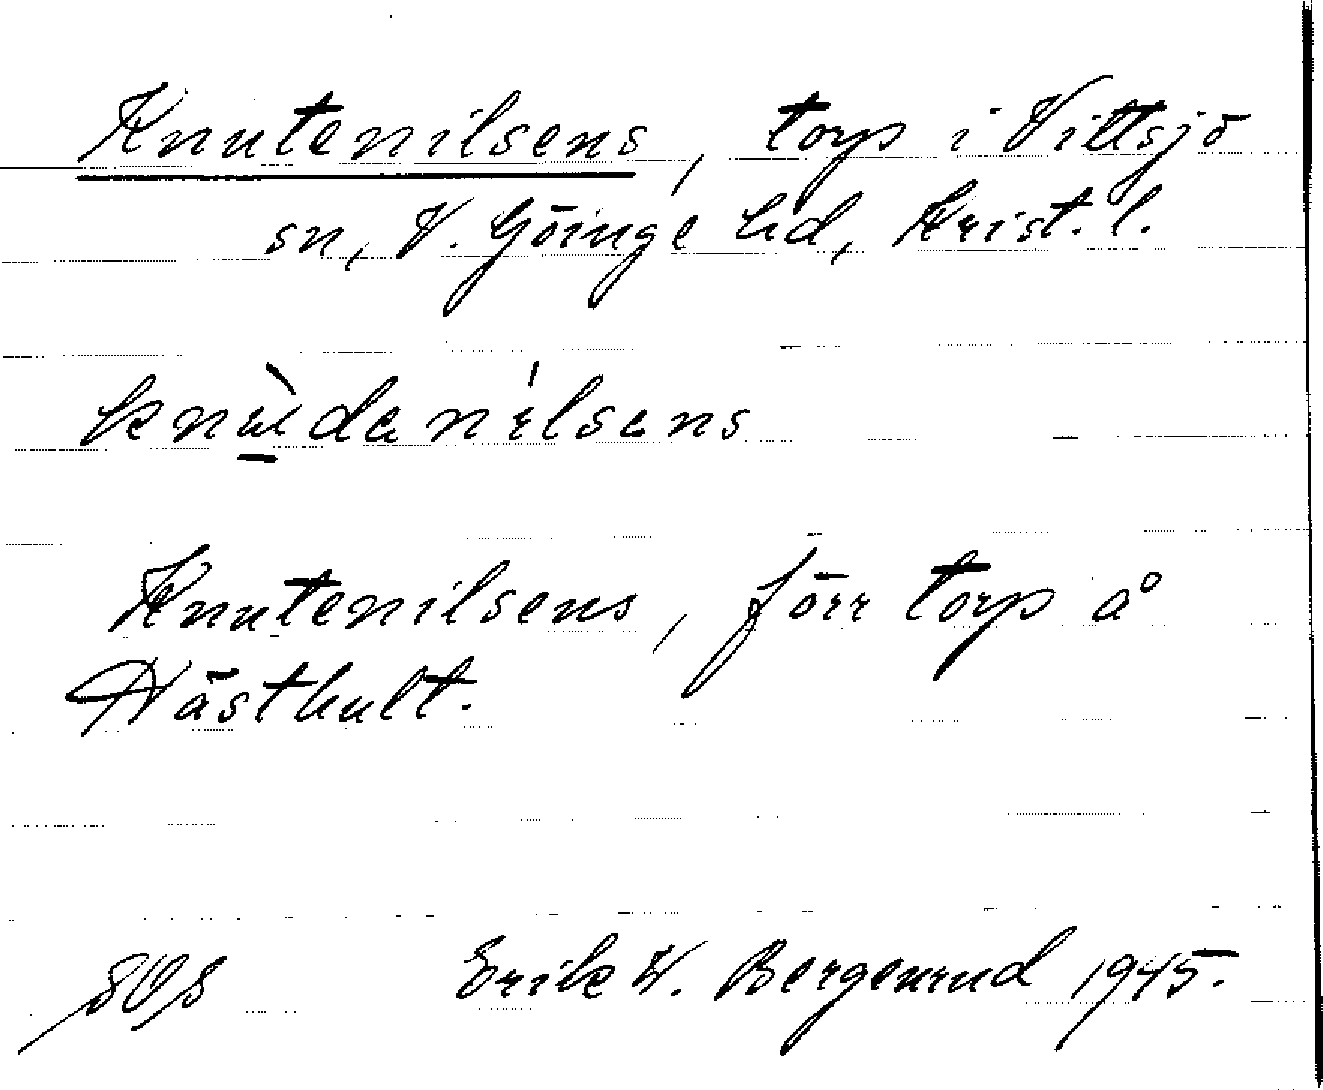 Knutenilsens, torp i Vittsjö
sn, V. Göinge hd, Krist. l.
Knutenilsens, förr torp å
Hästhult.
Erik W. Bergenrud 1945.